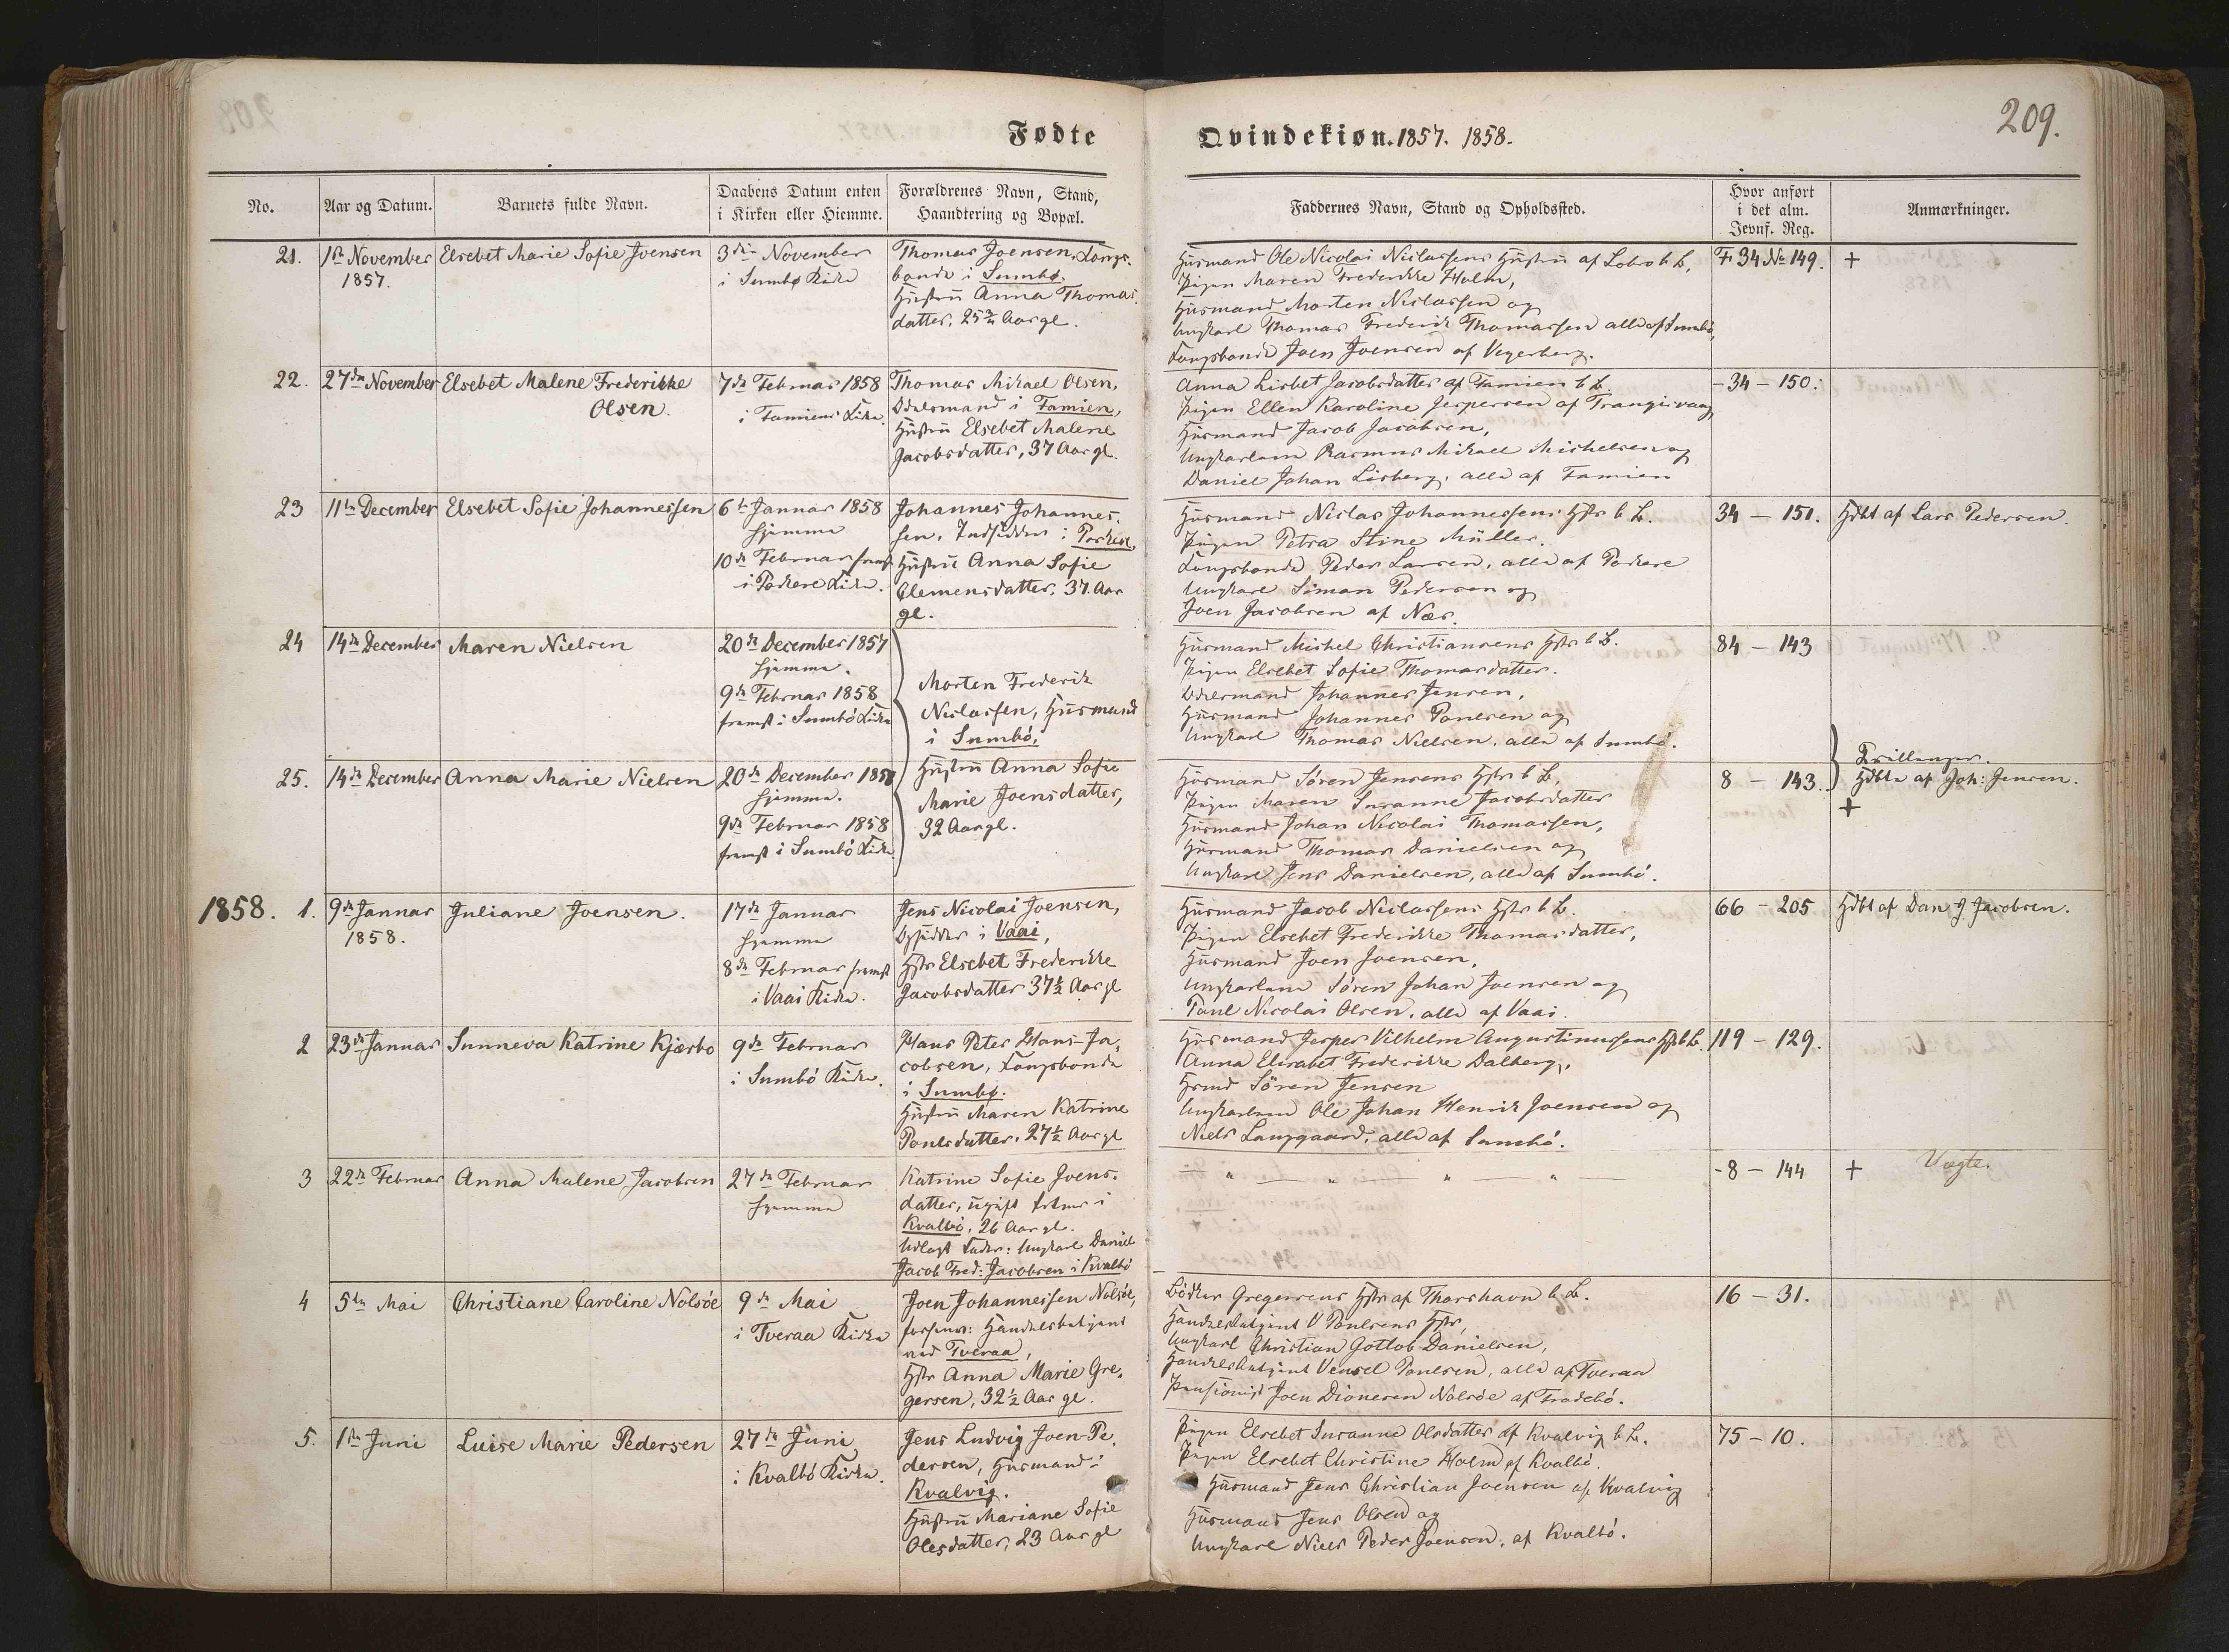 Fødte
Qvindekiøn. 1857. 1858.
209.
No.
Aar og Datum.
Barnets fulde Navn.
Daabens Datum enten
i Kirken eller Hiemme.
Forældrenes Navn, Stand,
Haandtering og Bopæl.
Faddernes Navn, Stand og Opholdssted.
Hvor anført
i det alm.
Jevnf. Reg.
Anmærkninger.
21.
1ste November
1857.
Elsebet Marie Sofie Joensen
3die November
i Sumbø Kirke
Thomas Joensen, Kongs-
bonde i Sumbø.
Hustru Anna Thomas-
datter, 25 3/4 Aar gl.
Husmand Ole Nicolai Niclassens Hustru af Lobro b. B.
Pigen Maren Frederikke Holm,
Husmand Morten Niclassen og
Ungkarl Thomas Frederik Thomassen alle af Sumbø,
Kongsbonde Joen Joensen af
F. 34 No 149.
+
22.
27de November
Elsebet Malene Frederikke
Olsen.
7de Februar 1858
i Famiens Kirke.
Thomas Mikael Olsen,
Odelsmand i Famien,
Hustru Elsebet Malene
Jacobsdatter, 37 Aar gl.
Anna Lisbet Jacobsdatter af Famien b. B.
Pigen Ellen Karoline Jespersen af Trangisvaag
Husmand Jacob Jacobsen,
Ungkarlene Rasmus Mikael Michelsen og
Daniel Johan Lisberg, alle af Famien
- 34 - 150.
23
11te December
Elsebet Sofie Johannessen
6te Januar 1858
hjemme
10de Februar fremst
i Porkere Kirke.
Johannes Johannes-
sen, Indsidder i Porkere,
Hustru Anna Sofie
Clemensdatter, 37 Aar
gl.
Husmand Niclas Johannessens Hstr b. B.
Pigen Petra Stine Müller.
Kongsbonde Peder Larsen, alle af Porkere
Ungkarl Simon Pedersen og
Joen Jacobsen af Næs.
34 - 151.
Hdbt af Lars Pedersen.
24
14de December
Maren Nielsen
20de December 1857
hjemme.
9de Februar 1858
fremst i Sumbö Kirke
Morten Frederik
Niclassen, Husmand
i Sumbö,
Husmand Michel Christiansens Hstr b. B.
Pigen Elsebet Sofie Thomasdatter.
Odelsmand Johannes Jensen,
Husmand Johannes Poulsen og
Ungkarl Thomas Nielsen, alle af Sumbö.
84 - 143
Trillinger.
25.
14de December
Anna Marie Nielsen
20de December 1857
hjemme.
9de Februar 1858
fremst i Sumbö Kirke
Hustru Anna Sofie
Marie Joensdatter,
32 Aar gl.
Husmand Sören Jensens Hstr b. B.
Pigen Maren Susanne Jacobsdatter
Husmand Johan Nicolai Thomassen,
Husmand Thomas Danielsen og
Ungkarl Jens Danielsen, alle af Sumbö.
8 - 143.
Hdbte af Joh: Jensen.
+
1858.
1.
9de Januar
1858.
Juliane Joensen.
17de Januar
hjemme
8de Februar fremst
i Vaai Kirke.
Jens Nicolai Joensen,
Opsidder i Vaai,
Hstr Elsebet Frederikke
Jacobsdatter 37 1/2 Aar gl
Husmand Jacob Niclassens Hstr b. B.
Pigen Elsebet Frederikke Thomasdatter,
Husmand Joen Joensen,
Ungkarlene Sören Johan Joensen og
Poul Nicolai Olsen, alle af Vaai.
66 - 205
Hdbt af Dan J Jacobsen.
2
23de Januar
Sunneva Katrine Kjærbo
9de Februar
i Sumbö Kirke.
Hans Peter Hans-Ja-
cobsen, Kongsbonde
i Sumbø.
Hustru Maren Katrine
Poulsdatter, 27 1/2 Aar gl
Husmand Jesper Vilhelm Augustinussens Hstr b. B.
Anna Elisabet Frederikke Dalberg,
Hsmd Sören Jensen
Ungkarlene Ole Johan Henrik Joensen og
Niels Langgaard, alle af Sumbö.
119 - 129.
3
22de Februar
Anna Malene Jacobsen
27de Februar
hjemme
Katrine Sofie Joens-
datter, ugift i
Kvalbö, 26 Aar gl.
Udlagt Fader: Ungkarl Daniel
Jacob Fred: Jacobsen i Kvalbö
— " — " — " — " —
- 8 - 144
+ Vægte.
4
5te Mai
Christiane Caroline Nolsöe
9de Mai
i Tveraa Kirke
Joen Johannessen Nolsöe,
Handelsbetjent
ved Tveraa,
Hstr Anna Marie Gre-
gersen, 32 1/2 Aar gl.
Bödker Gregersens Hstr af Thorshavn b. B.
Handelsbetjent V Poulsens Hstr,
Ungkarl Christian Gotlob Danielsen,
Handelsbetjent Vensel Poulsen, alle af Tveraa
Pensionist Joen Dionesen Nolsöe af Frodebö.
16 - 31.
5.
1ste Juni
Luise Marie Pedersen
27de Juni
i Kvalbö Kirke.
Jens Ludvig Joen-Pe-
dersen, Husmand i
Kvalvig.
Hustru Mariane Sofie
Olesdatter, 23 Aar gl
Pigen Elsebet Susanne Olesdatter af Kvalvig b. B.
Pigen Elsebet Christine Holm af Kvalbö.
Husmand Jens Christian Joensen af Kvalvig
Husmand Jens Olsen og
Ungkarl Niels Peder Joensen, af Kvalbö.
75 - 10.